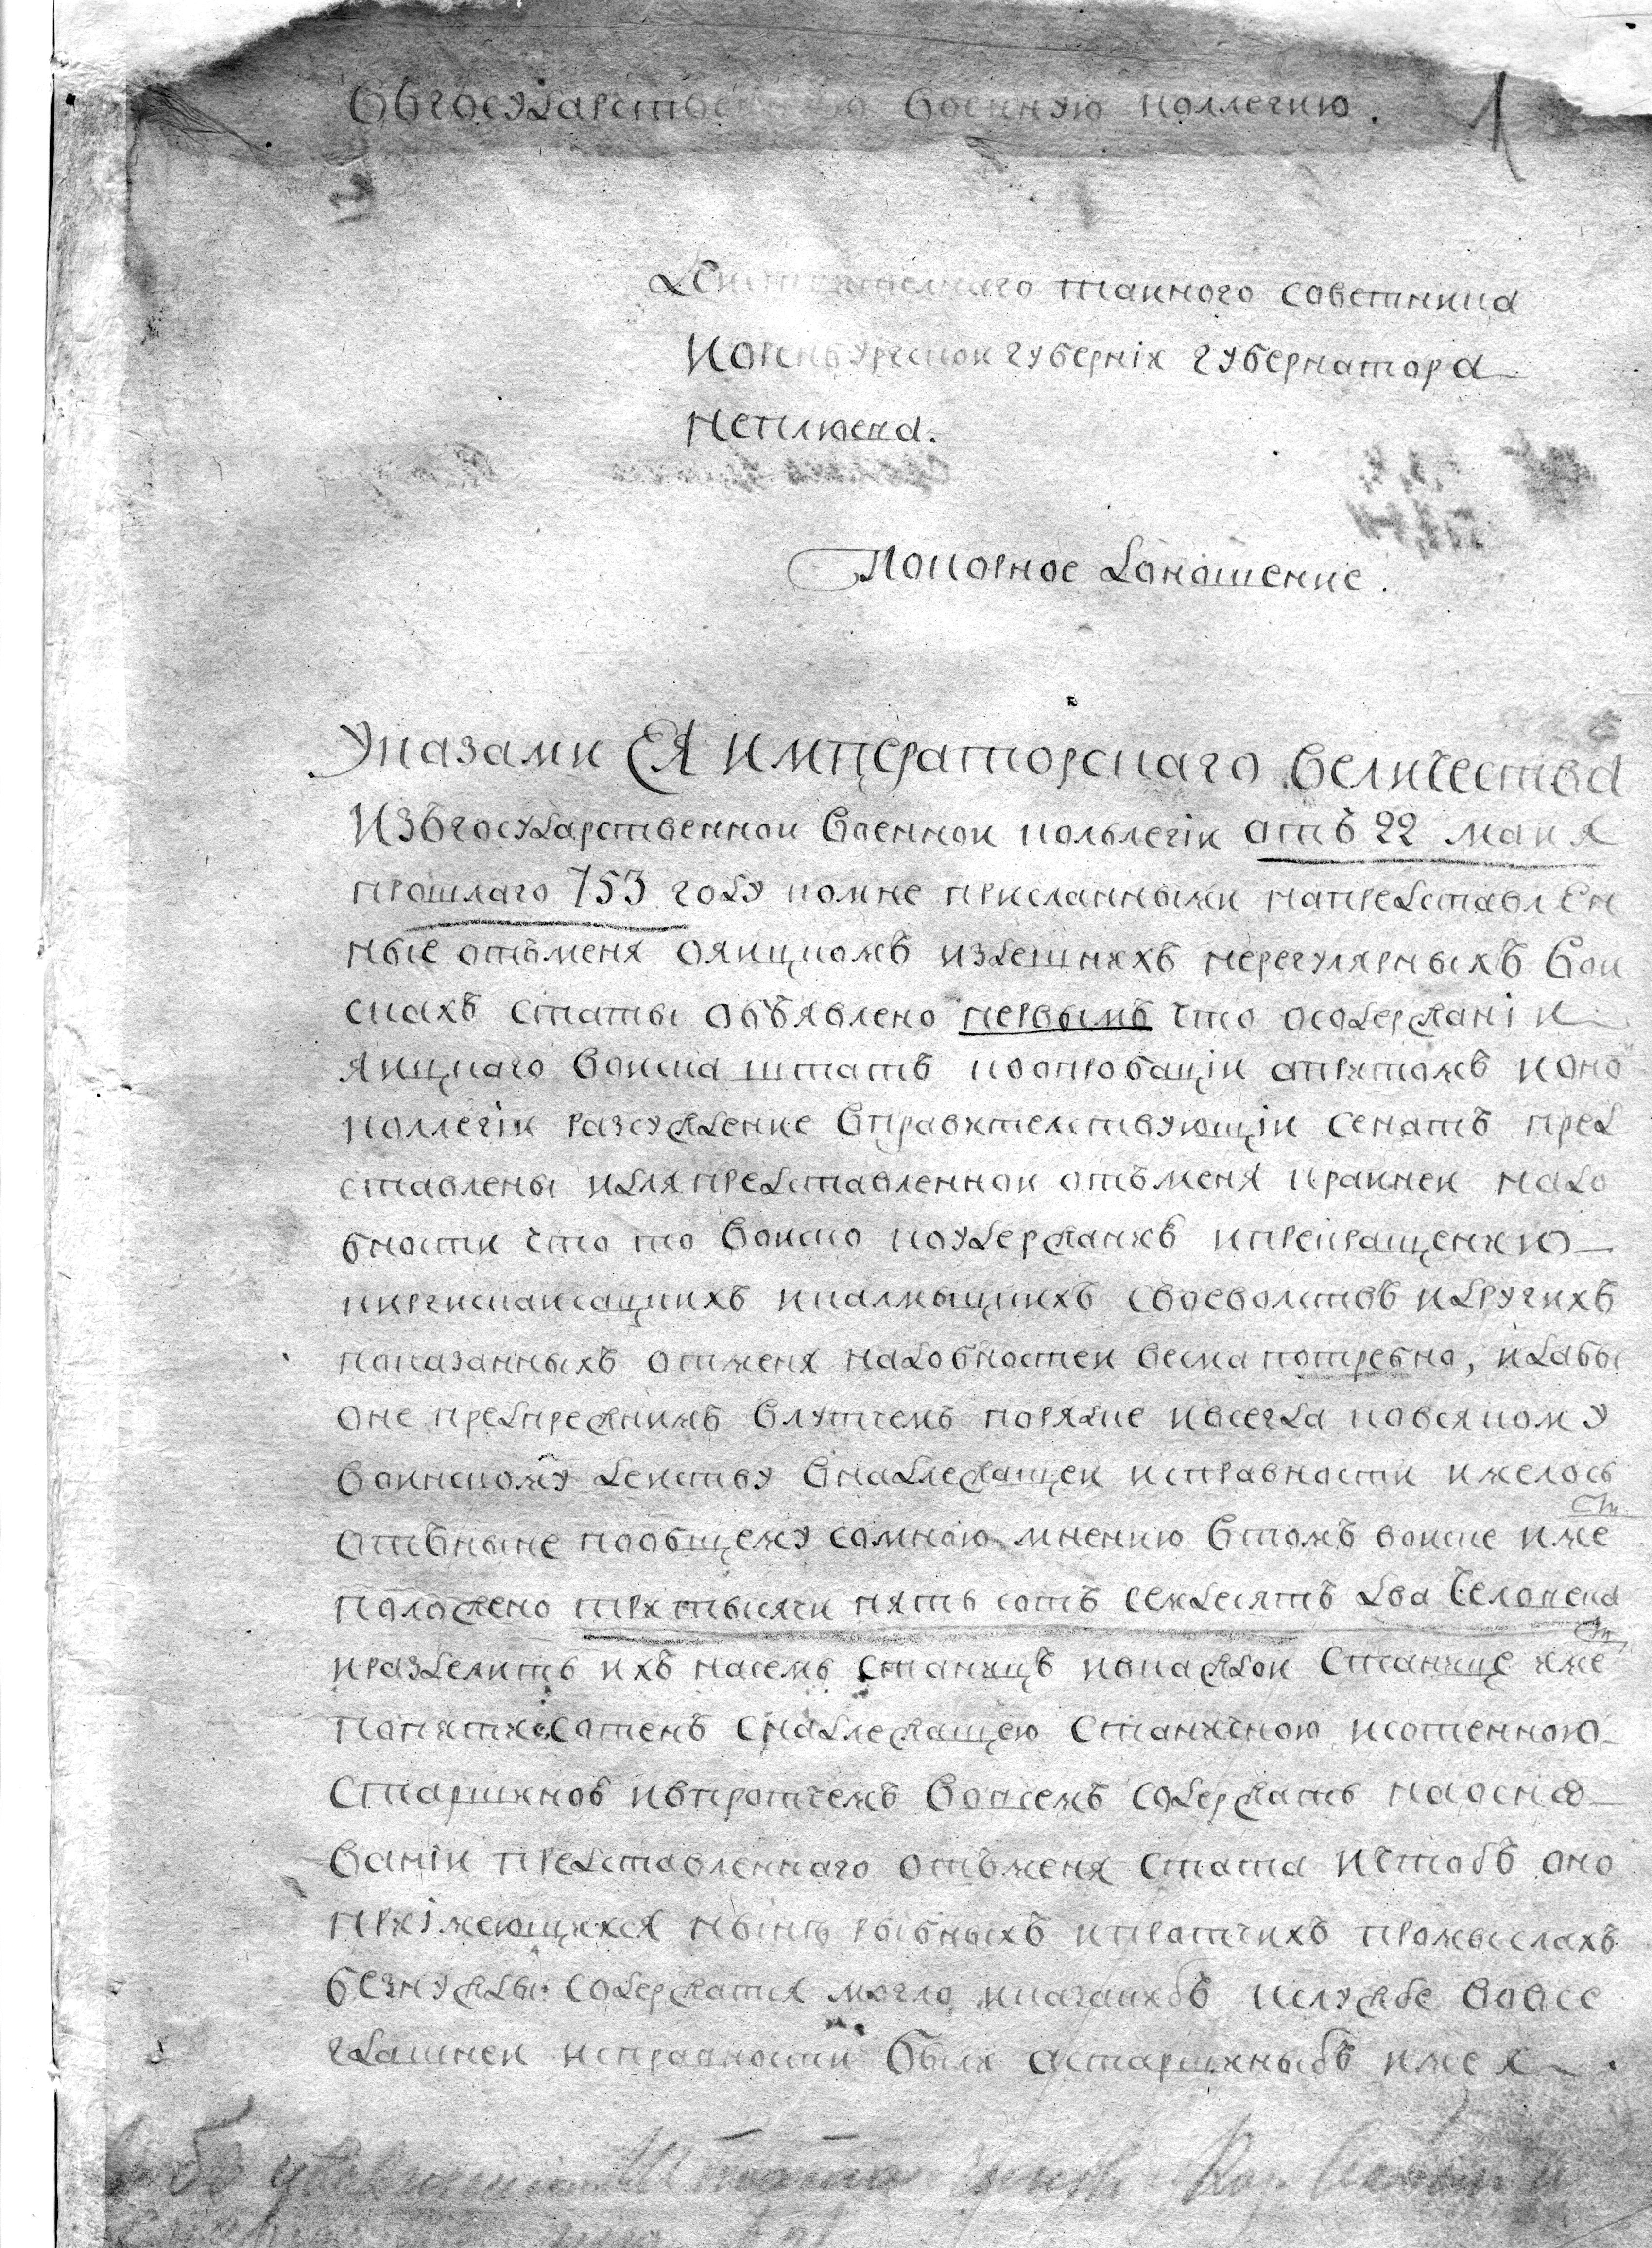 Въ государственную военную коллегию.
1
Действителнаго таиного советника
и Оренбургскои губерніи губернатора
Неплюева.
Покорное доношение.
Указами Ея императорскаго величества
изъ государственнои военнои кольлегіи отъ 22 маия
прошлаго 753 году ко мне присланными на представлен
ные отъ меня о яицкомъ и здешнихъ нерегулярныхъ вои
скахъ статы объявлено первымъ что о содержаніи
яицкаго воиска штатъ к опробаціи а притомъ и оно
коллегіи разсуждение в правителствующіи сенатъ пред
ставлены и для представленнои отъ меня краинеи надо
бности что то воиско к удержанию и прекращению
киргискаисацкихъ и калмыцкихъ своеволствъ и других
показанныхъ от меня надобностеи весма потребно, и дабы
оне пред прежнимъ в лутчемъ порядке и всегда ко всякому
воинскому деиству в надлежащеи исправности имелось
отъ ныне по общему со мною мнению в томъ воиске име ст
положено три тысячи пять сотъ семдесятъ два человека
и разделить ихъ на семь станицъ и в каждои станице име ст
по пяти сотенъ с надлежащею станичною и сотенною
старшиною и в протчемъ во всемъ содержать на осно
ваніи представленнаго отъ меня стата и чтобъ оно
при імеющихся ныне рыбныхъ и протчихъ промыслахъ
без нужды содержатся могло и казаки бъ к службе во все
гдашнеи исправности были а старшины бъ имея